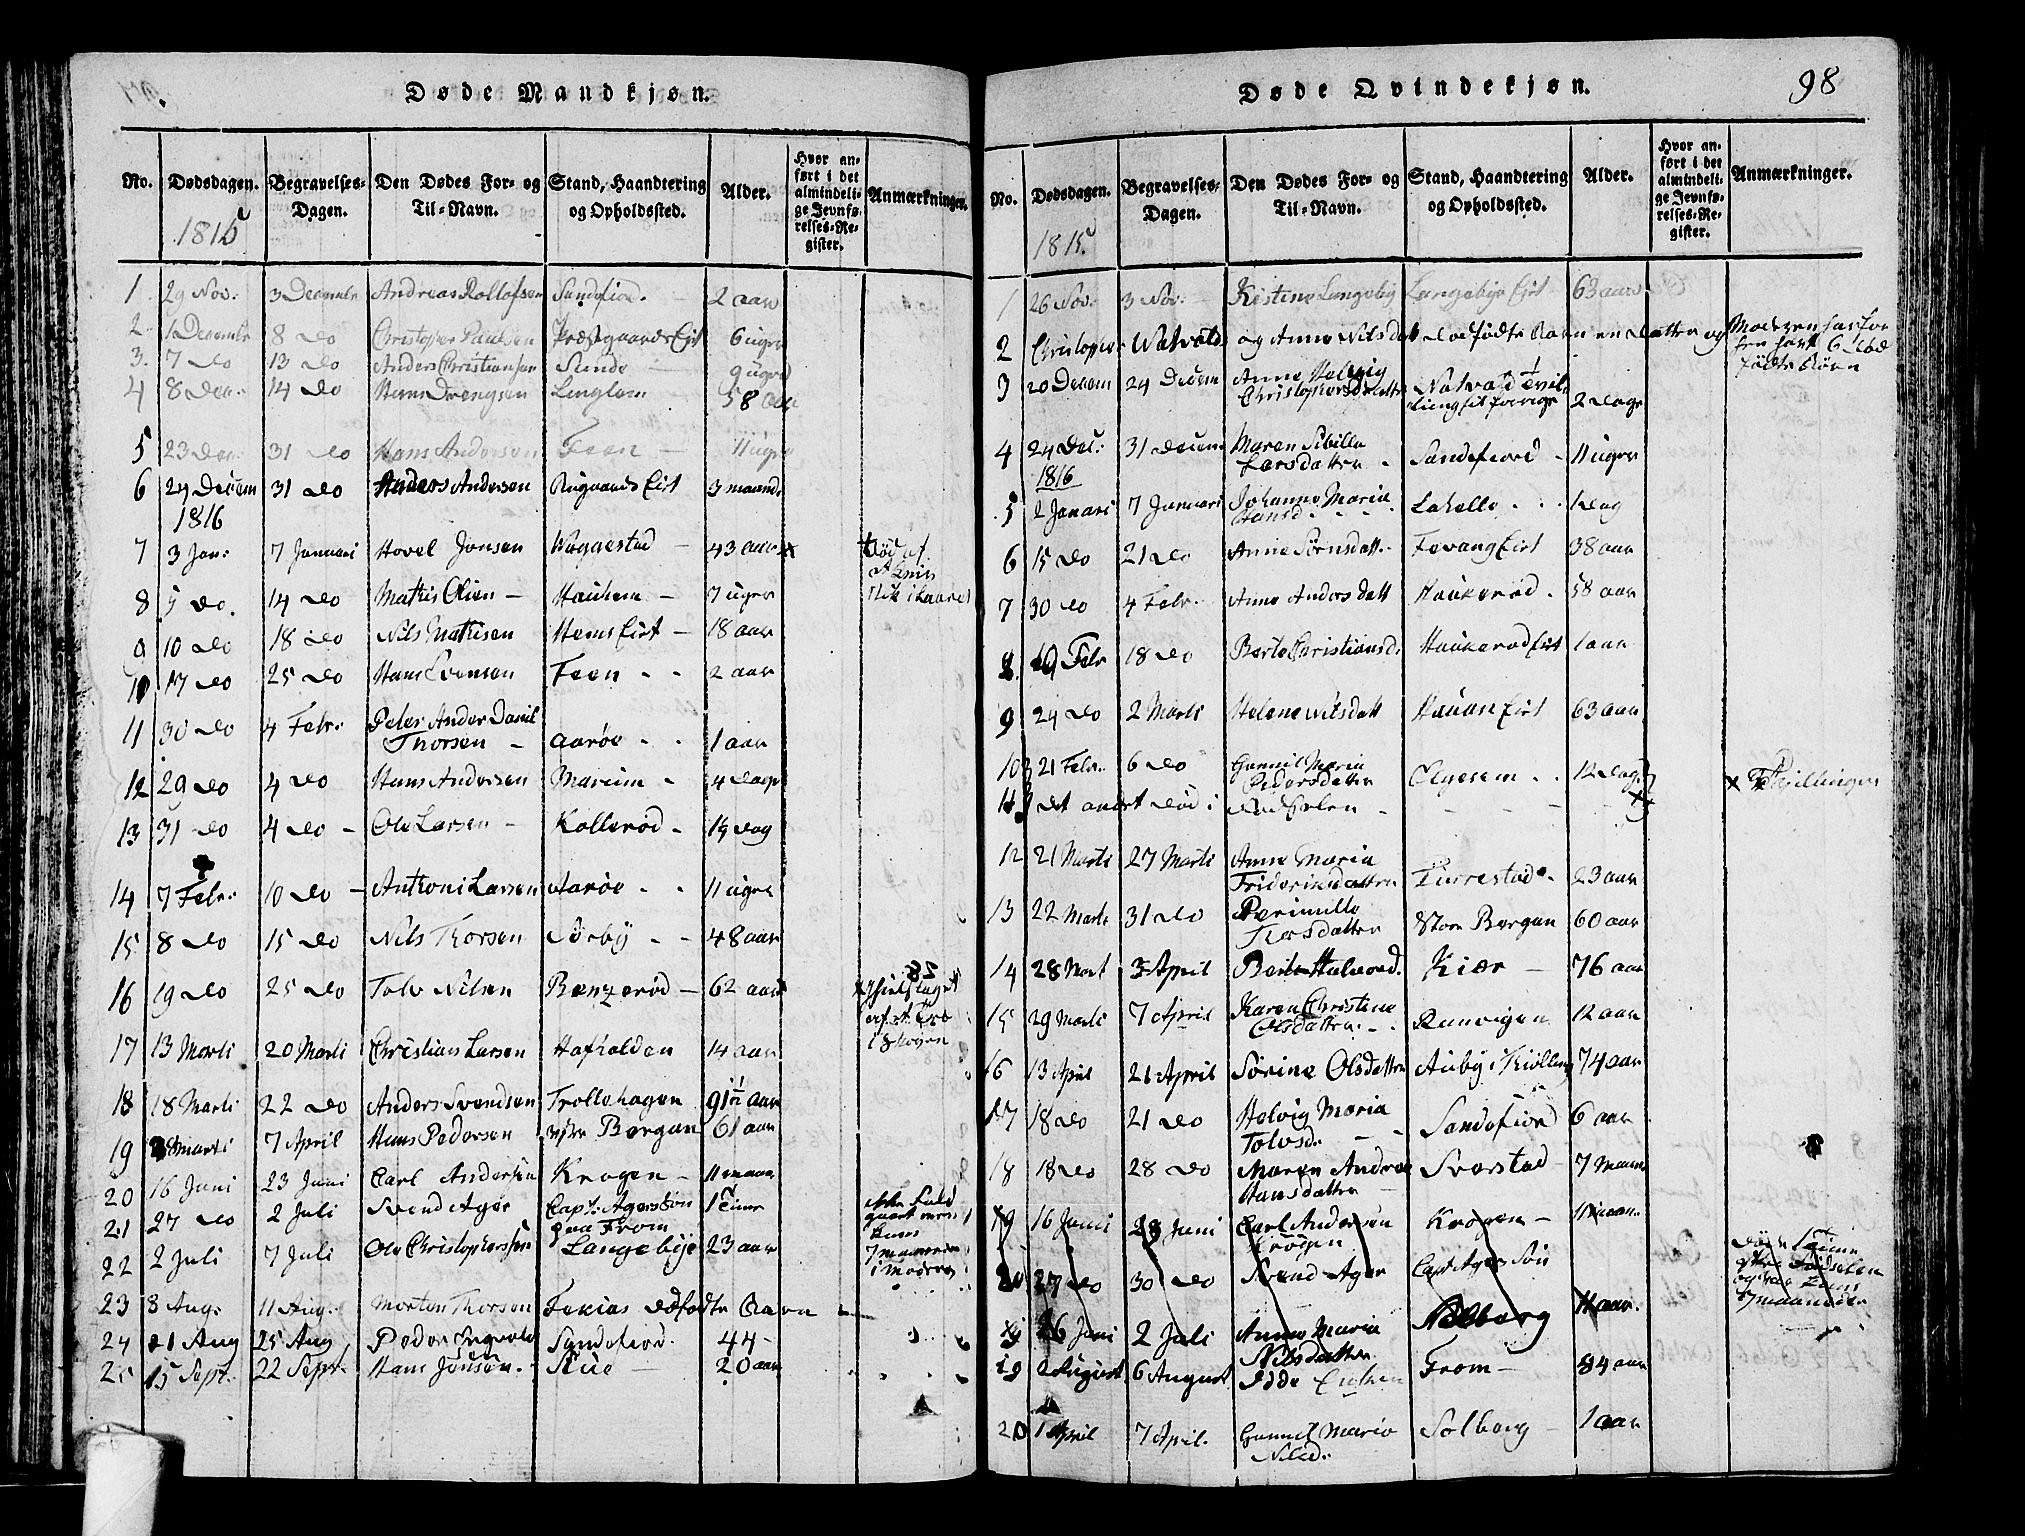 Døde Mandkjøn.
No. Dødsdagen. Begravelses-Dagen. Den Dødes For- og Til-Navn. Stand, Haandtering og Opholdssted. Alder. Hvor anført i det almindelige Jevnførelses-Register. Anmærkninger.
1815
1 29 Nov. 3 Decembr Andreas Rollofsen Sandefiord. 2 aar
2 1 Decembr 8 do Christopher Paulsen Præstgaards Eie 6 uger
3. 7 do 13 do Anders Christiansen Sunde 9 uger
4 8 Dec. 14 do Hans 58 aar
5 23 Dec. 31 do Hans Andersen Feen 11 uger
6 24 Decem 31 do Anders Andersen 3 maand.
1816
7 3 Jan. 7 Januari Hovel Jonsen Wæggestad 43 aar x
Død af
8 5 do. 14 do Mathis Olsen Haukem 7 uger
9 10 do 18 do Nils Mathisen Hems Eie 18 aar
10 17 do 25 do Hans Evensen Feen 2 aar
11 30 do 4 Febr. Peter Ander Danil Thorsen Aarøe 1 aar
12 29 do 4 do Hans Andersen Marum 4 dage
13 31 do 4 do Ole Larsen Kollerød 19 dag
14 7 Febr. 10 do Anthoni Larsen Aarøe 11 uger
15 8 do 15 do Nils Thorsen Sørby 48 aar
16 19 do 25 do Tolv Nilsen Benzerød 62 aar
28
i skoven
17 13 Marti 20 Marti Christian Larsen Hafsolden 14 aar
18 18 Marti 22 do Anders Svendsen Trollehagen 91½ aar
19 28 Marti 7 April Hans Pedersen Bergan 61 aar
20 16 Juni 23 Juni Carl Andersen Krogen 11 maan
21 27 do 2 Juli Svend Ager Capt. Agers Søn paa From 1 Time
7 maaneder
i Moders
22 2 Juli 7 Juli Ole Christophersen Langebye 23 aar
23 8 Aug. 11 Aug. Morten Thorsen dødfødte Barn
24 21 Aug 25 Aug Peder Ingvold Sandefiord. 44
25 15 Sept. 22 Sept. Hans Jonsen. Rue 20 aar
Døde Qvindekjøn. 98
No. Dødsdagen. Begravelses-Dagen. Den Dødes For- og Til-Navn. Stand, Haandtering og Opholdssted. Alder. Hvor anført i det almindelige Jevnførelses-Register. Anmærkninger.
1815.
1 26 Nov. 3 Nov. Kistine Langeby Langebye Eie 63 aar
2 Christopher Natvold og Anne Nilsdatt dødfødte Barn en datter og Moderen har for
den havt 6 død
fødte Børn
3 20 Decem 24 Decem Anne Helvig Christophersdatter Natvold 2 dage
4 24 Dec. 31 Decem Maren Sibille Larsdatter Sandefiord 11 uger
1816
5 2 Januari 7 Januari Johanne Maria Hansd. Lahelle 1 dag
6 15 do 21 do Anne Sørnsdatt. Fevang Eie 38 aar
7 30 do 4 Febr. Anne Andersdatt Haukerød 58 aar
8 10 Febr 18 do Berte Christiansd. Haukerød Eie 1 aar
9 24 do 2 Marti Helene Nilsdatt Eie 63 aar
10 21 Febr. 6 do Gunnil Maria Pedersdatter 12 dage x Tvillinger
11 det andet død i Fødselen
12 21 Marti 27 Marti Anne Maria Frideriksdatter Furrestad 23 aar
13 22 Marti 31 do Pernille Store Bergan 60 aar
14 28 Mart 3 April Berte Halvord. Kiær 76 aar
15 29 Marti 7 April Karen Christine Olsdatter Ranvigen 12 aar
16 13 April 21 April Sørine Olsdatter Auby i Kiølling 74 aar
17 18 do 21 do Helvig Maria Tolvsd. Sandefiord 6 aar
18 18 do 28 do Maren Andrea Hansdatter Sverstad 7 maan
19 16 Juni 23 Juni Carl Andersen Krogen Krogen 11 maan.
20 27 do 30 do Svend Ager Capt Agers Søn
Døde 1 Time
efter Fødselen
7 maaneder
19 26 Juni 2 Juli Anne Maria Nilsdatter Solberg 11 aar.
19 2 August 6 August Idde From 84 aar
20 1 April 7 April. Gunnil Maria Nilsd. Solberg 1 aar